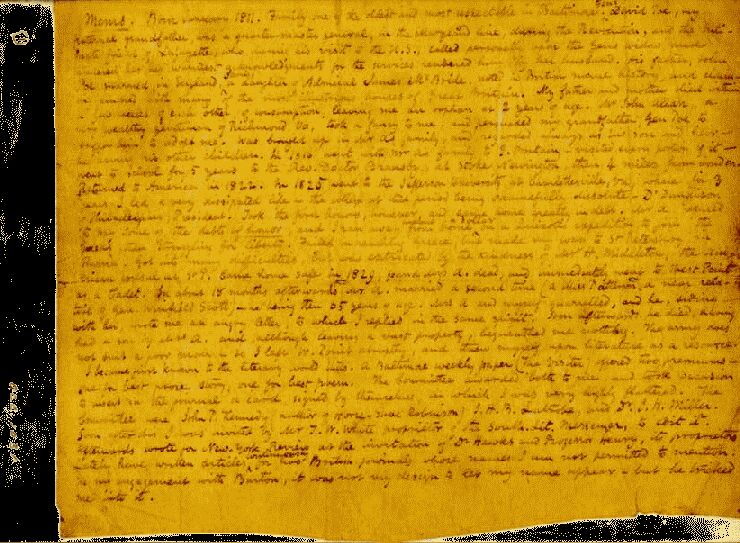 Memo. Born January 1811. Family one of the oldest and most respectable in Baltimore. Gen. David Poe, my
paternal grandfather, was a quarter-master general, in the Maryland line, during the Revolution, and the
friend of Lafayette, who during his visit to the U.S., called personally upon the Gen's widow, and
her his acknowledgments for the services rendered him by her husband. His father, John
Poe married, in England, Jane, a daughter of Admiral James McBride, noted in British naval history, and
to many of the most illustrious houses of Great Britain. My father and mother died within
a few weeks of each other, of consumption, leaving me an orphan at 2 years of age. Mr John Allan, a
very wealthy gentleman of Richmond Va, took a fancy to me, and persuaded my grandfather, Gen Poe to
him to adopt me. Was brought up in Mr A's family, and regarded always as his son and heir —
he having no other children. In 1816 went with Mr A's family to G. Britain — visited every portion of it —
went to school for 5 years to the Rev. Doctor Bransby, at Stoke Newington, then 4 miles from London.
Returned to America in 1822. In 1825 went to the Jefferson University at Charlottesville, Va, where for 3
years I led a very dissipated life — the college at that period being shamefully dissolute — Dr
of Philadelphia, President. Took the first honors, however, and came home greatly in debt. Mr A. refused
to pay some of the debts of honor, and I ran away from home without a dollar on a quixotic expedition to join the
Greeks, then struggling for liberty. Failed in reaching Greece, but made my way to St Petersburg, in
Russia. Got into many difficulties, but was extricated by the kindness of Mr H. Middleton, the American
consul at St P. Came home safe in 1829, found Mrs A. dead, and immediately went to West Point
as a Cadet. In about 18 months afterwards Mr A. married a second time (a Miss Patterson, a near relative
of Gen. Winfield Scott) — he being then 65 years of age. Mrs A and myself quarrelled, and he, siding
with her, wrote me an angry letter, to which I replied in the same spirit. Soon afterwards he died, having
had a son by Mrs A. and, although leaving a vast property, bequeathed me nothing. The army does
not suit a poor man — so I left W. Point abruptly, and threw myself upon literature as a resource.
I became first known to the literary world thus. A Baltimore weekly paper (The Visiter) offered two premiums —
one for best prose story, one for best poem. The Committee awarded both to me, and took occasion
to insert in the journal a card, signed by themselves, in which I was very highly flattered. The
Committee were John P. Kennedy (author of Horse-Shoe Robinson) J. H. B. Latrobe, and Dr. J. H. Miller.
Soon after this I was invited by Mr T. W. White proprietor of the South. Lit. Messenger, to edit it.
Afterwards wrote for New-York Review at the invitation of Dr Hawks and Professor Henry, its proprietors.
Lately have written articles continuously for two British journals whose names I am not permitted to mention.
In my engagement with Burton, it was not my design to let my name appear — but he tricked
me into it.